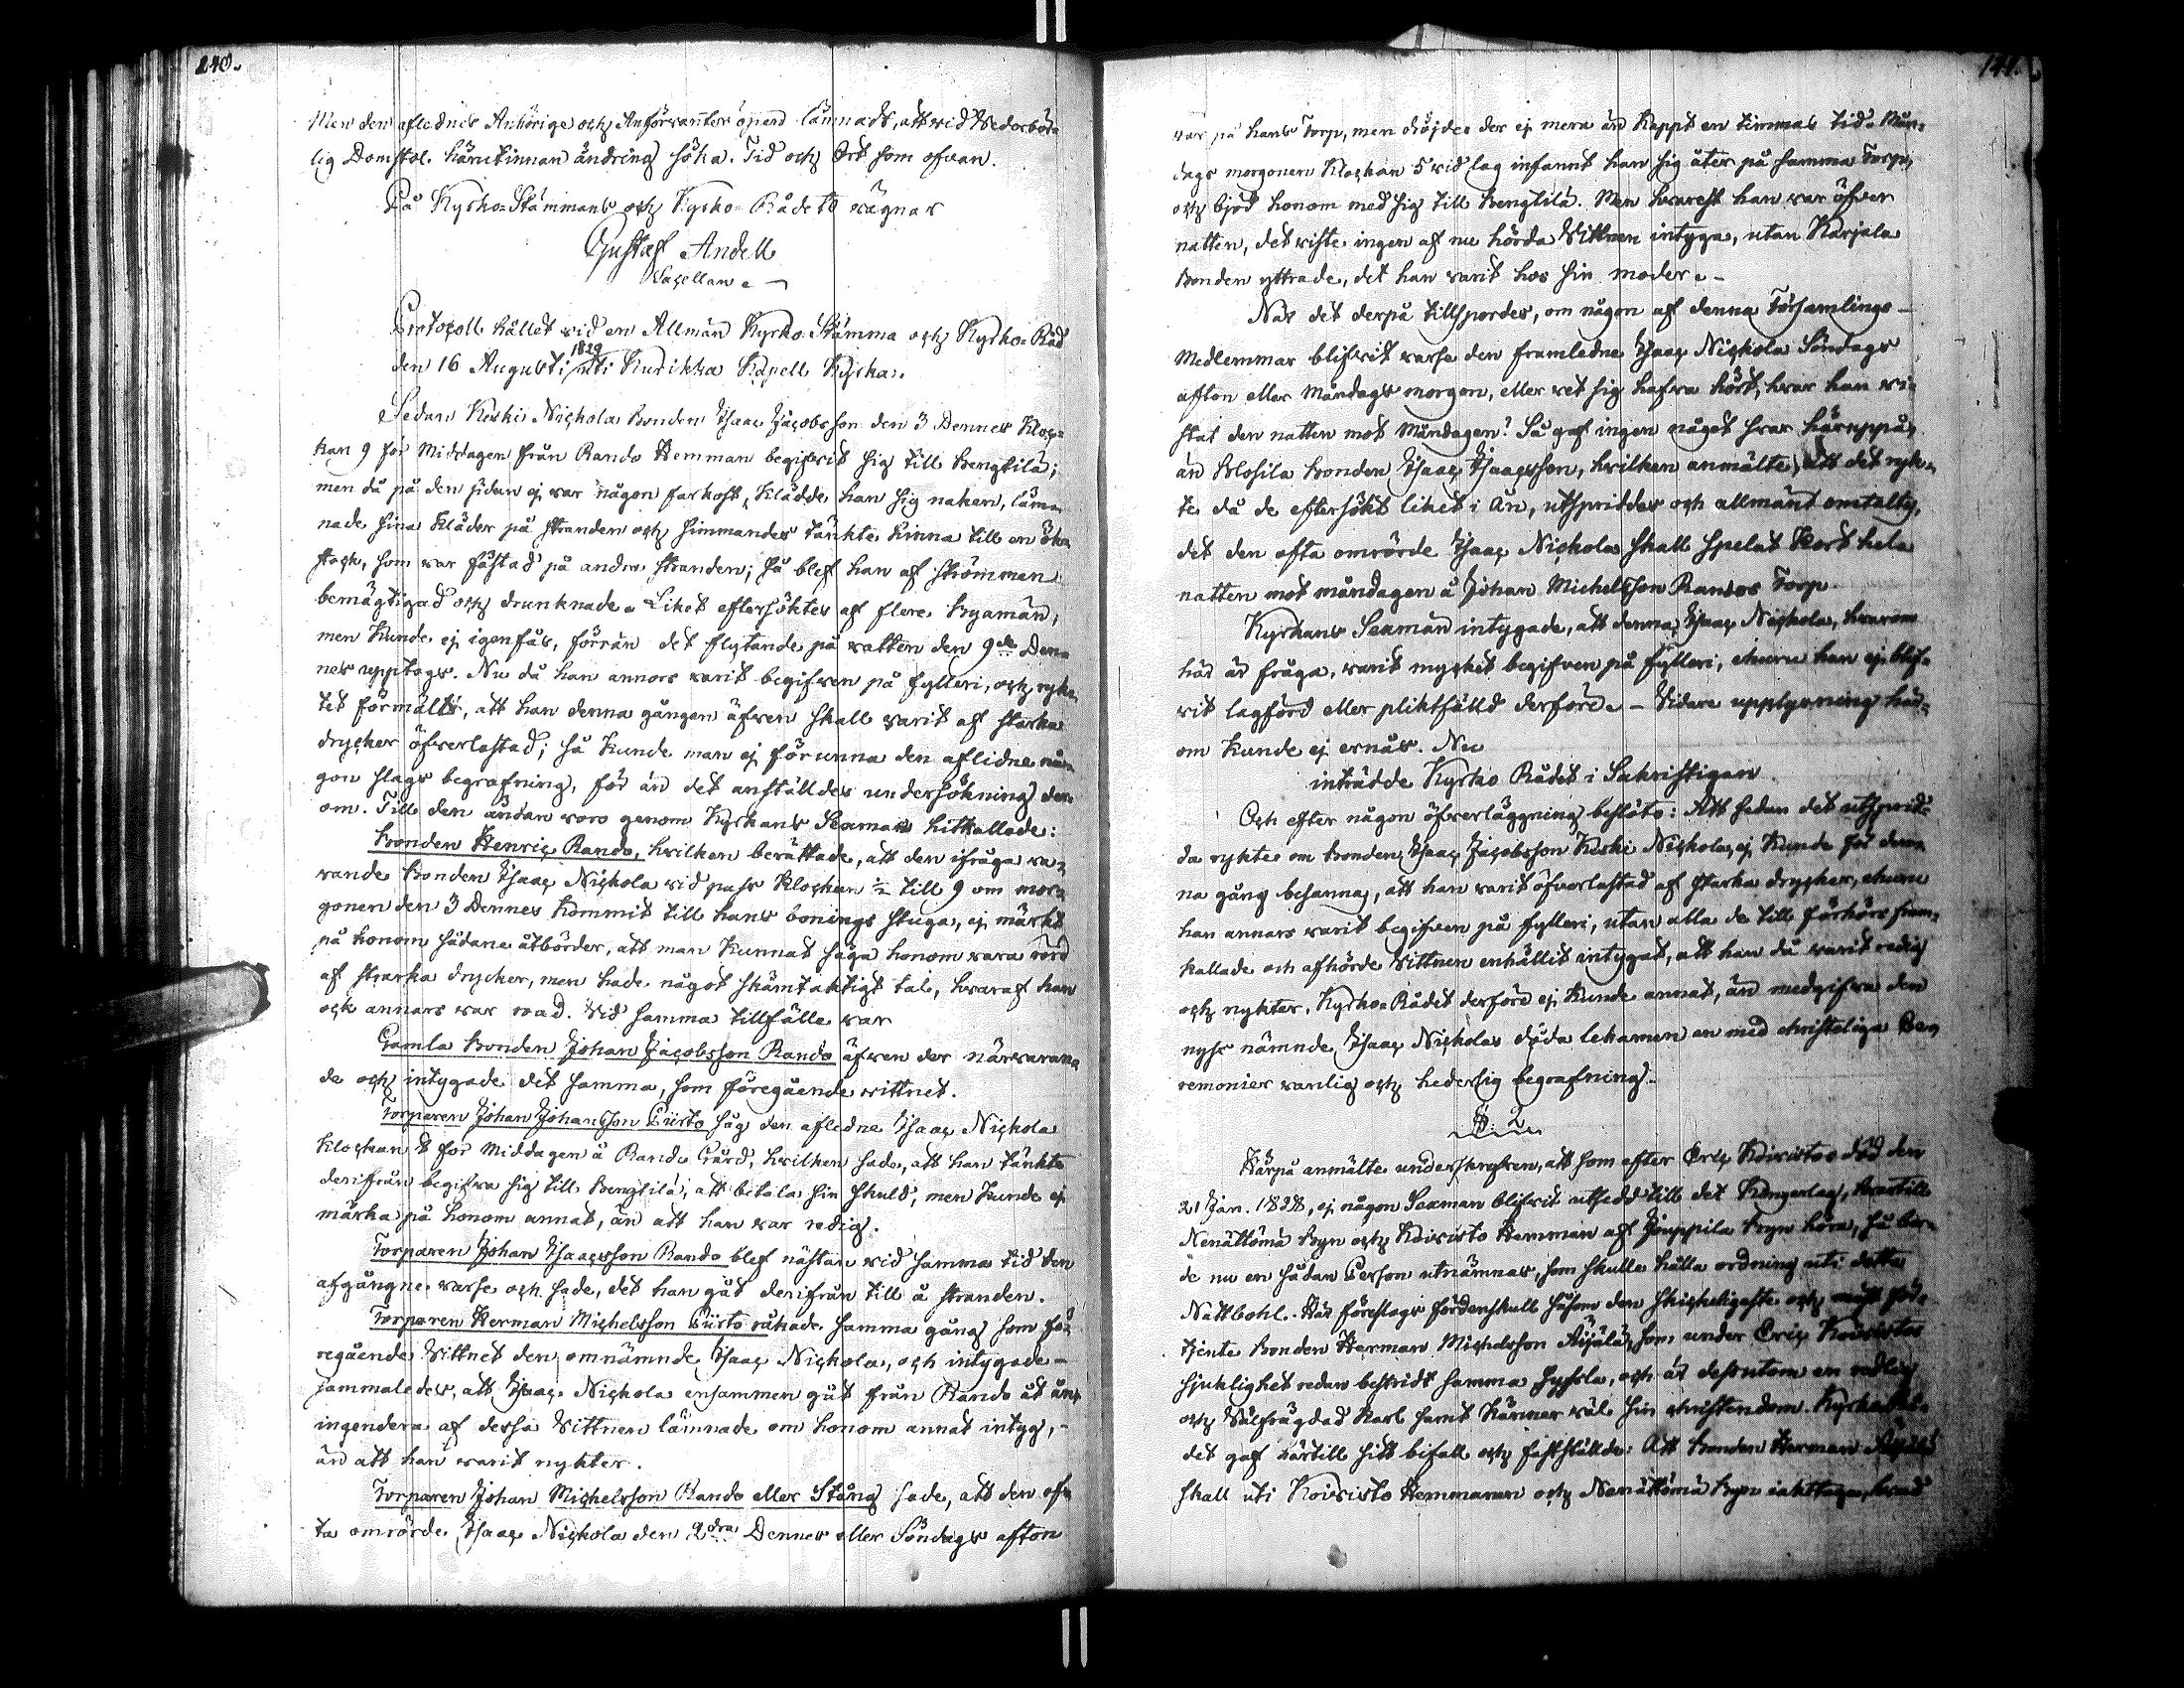 240.
Men den aflednes Anhörige och Anförvanter öpend lämnadt, att vid Wederbör-
lig Domstol härutinnan ändring söka. Tid och Ort som ofvan.
På Kyrko-Stämmans och Kyrko-Rådets vägnar
Gustaf Andell
Sacellan.
Protocoll hållet vid en Allmän Kyrko-Stämma och Kyrko-Råd
den 16 Augusti 1829 uti Kurikka Kapell Kyrka.
Sedan Keski Nickola Bonden Isaac Jacobsson den 3 Dennes Kloc-
kan 9 för Middagen från Rando Hemman begifvit sig till Bengtilä;
men då på den sidan ej var någon farkost, klädde han sig naken, läm-
nade sina kläder på stranden och simmandes tänkte hinna till en ök-
stock, som var fästad på andra stranden; så blef han af strömmen
bemägtigad och drunknade. Liket eftersöktes af flere Byamän,
men kunde ej igenfås, förrän det flytande på vatten den 9de Den-
nes upptogs. Nu då han annors varit begifven på fylleri, och ryk-
tet förmält, att han denna gången äfven skall varit af starka
drycker öfverlastad; så kunde man ej förunna den aflidne nå-
gon slags begrafning, för än det anställdes undersökning der-
om. Till den ändan voro genom Kyrkans Sexman hitkallade:
Bonden Henric Rando, hvilken berättade, att den ifråga va-
rande Bonden Isaac Nickola vid pass Klockan ½ till 9 om mor-
gonen den 3 Dennes kommit till hans bonings stuga, ej märkt
på honom sådane åtbörder, att man kunnat säga honom vara rörd
af starka drycker, men hade något skämtaktigt tal, hvaraf han
ock annars var road. Vid samma tillfälle var
Gamla Bonden Johan Jacobsson Rando äfven der närvaran-
de och intygade det samma, som föregående vittnet.
Torparen Johan Johansson Piirto såg den afledne Isaac Nickola
Klockan 8 för Middagen å Rando Gård, hvilken sade, att han tänkte
derifrån begifva sig till Bengtilä, att betala sin skuld, men kunde ej
märka på honom annat, än att han var redig.
Torparen Johan Isaacsson Rando blef nästan vid samma tid den
afgångne varse och sade, det han gåt derifrån till å stranden.
Torparen Herman Michelsson Piirto råkade samma gång som fö-
regående Vittnet den omnämnde Isaac Nickola, och intygade
sammaledes, att Isaac Nickola ensammen gåt från Rando åt ån,
ingendera af dessa Vittnen lämnade om honom annat intyg,
än att han varit nykter.
Torparen Johan Michelsson Rando eller Stång sade, att den of-
ta omrörde Isaac Nickola den 2dra Dennes eller Söndags afton
141.
var på hans Torp, men dröjde der ej mera än knappt en timmas tid. Mån-
dags morgonen Klockan 5 vid lag infannt han sig åter på samma Torp,
och bjöd honom med sig till Bengtilä. Men hvarest han var öfver
natten, det viste ingen af nu hörda Vittnen intyga, utan Karjala
Bonden yttrade, det han varit hos sin moder.
När det derpå tillspordes, om någon af denna Församlings
Medlemmar blifvit varse den framledne Isaac Nickola Söndags
afton eller Måndags morgon, eller vet sig hafva hört, hvar han vi-
stat den natten mot Måndagen? Så gaf ingen något svar häruppå,
än Blosila Bonden Isaac Isaacsson, hvilken anmälte, att det ryk-
te då de eftersökt liket i ån, utspriddes och allmänt omtalts,
det den ofta omrörde Isaac Nickola skall spelat Kort hela
natten mot måndagen å Johan Michelsson Randos Torp.
Kyrkans Sexmän intygade, att denna Isaac Nickola, hvarom
här är fråga, varit mycket begifven på fylleri, ehuru han ej blif-
vit lagförd eller pliktfälld derföre. – Vidare upplysning här-
om kunde ej ernås. Nu
inträdde Kyrko Rådet i Sakristigan
Och efter någon öfverläggning beslöto: Att sedan det utsprid-
da rykte om Bonden Isaac Jacobsson Keski Nickola, ej kunde för den-
na gång besannas, att han varit öfverlastad af starka drycker, ehuru
han annars varit begifven på fylleri, utan alla de till förhörs fram-
kallade och afhörde Vittnen enhällit intygat, att han då varit redig
och nykter, Kyrko-Rådet derföre ej kunde annat, än medgifva den
nyss nämnde Isaac Nickolas döda lekamen en med christeliga Ce-
remonier vanlig och hederlig begrafning.
§. 2.
Härpå anmälte underskrefven, att som efter Eric Koivistos död den
21 Jan. 1828, ej någon Sexman blifvit utsedd till det Kongarlag, hvartill
Nenättömä Byn och Koivisto Hemman af Jouppila Byn höra, så bör-
de nu en sådan Person utnämnas, som skulle hålla ordning uti detta
Nattbohl. Här föreslogs fördenskull såsom den skickeligaste och mäst för-
tjente Bonden Herman Michelsson som under Eric Koivistos
sjuklighet redan bestridt samma syssla, och är dessutom en redlig
och välfrägdad Karl samt känner väl sin christendom. Kyrko Rå-
det gaf härtill sitt bifall och fastställde: Att Bonden Herman
skall uti Koivisto Hemmanen och Nenättömä Byn iakttaga, hvad